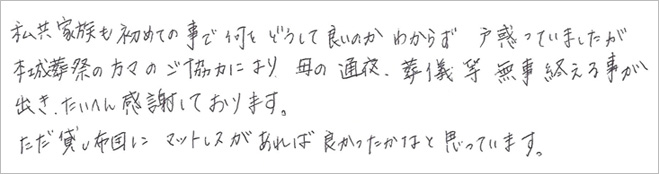 私共家族も初めての事で何をどうして良いのかわからず 戸惑っていましたが
本城葬祭の方々のご協力により 母の通夜、葬儀等 無事終える事が
出き、たいへん感謝しております。
ただ貸し布団に マットレスがあれば良かったかなと思っています。